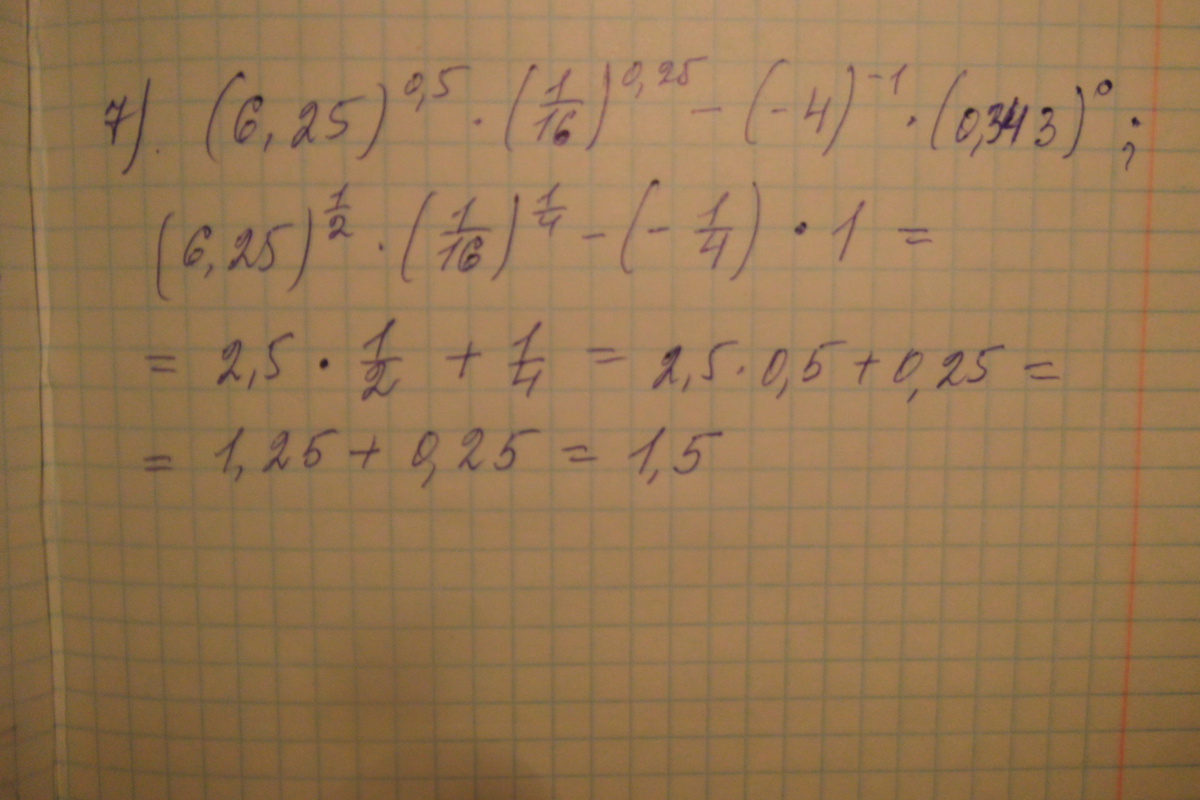 7). (6,25)^0,5 · (1/16)^0,25 - (-4)^-1 · (0,343)^0 ;
(6,25)^1/2 · (1/16)^1/4 - (-1/4) · 1 =
= 2,5 · 1/2 + 1/4 = 2,5 · 0,5 + 0,25 =
= 1,25 + 0,25 = 1,5